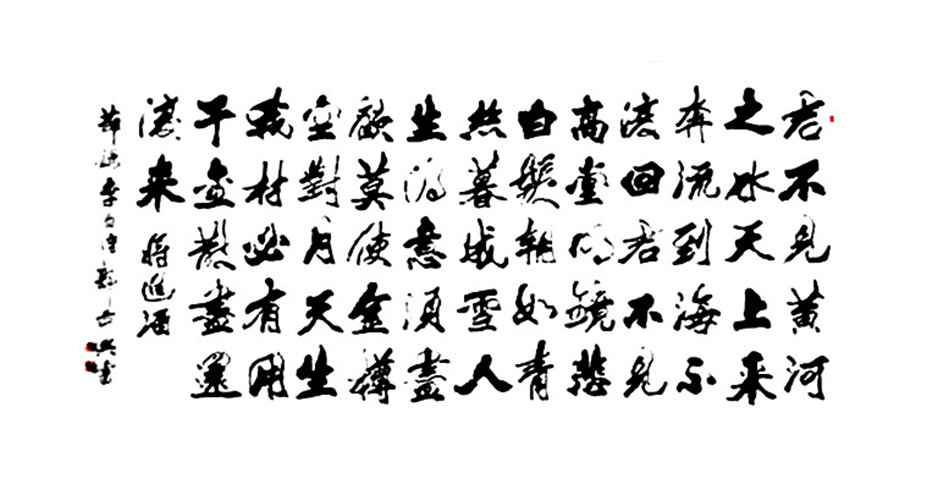 君不见黄河
之水天上来
奔流到海不
復回君不见
高堂明鏡悲
白髮朝如青
丝暮成雪人
生得意须盡
歡莫使金樽
空對月天生
我材必有用
千金散盡還
復来
将進酒
節録李白诗